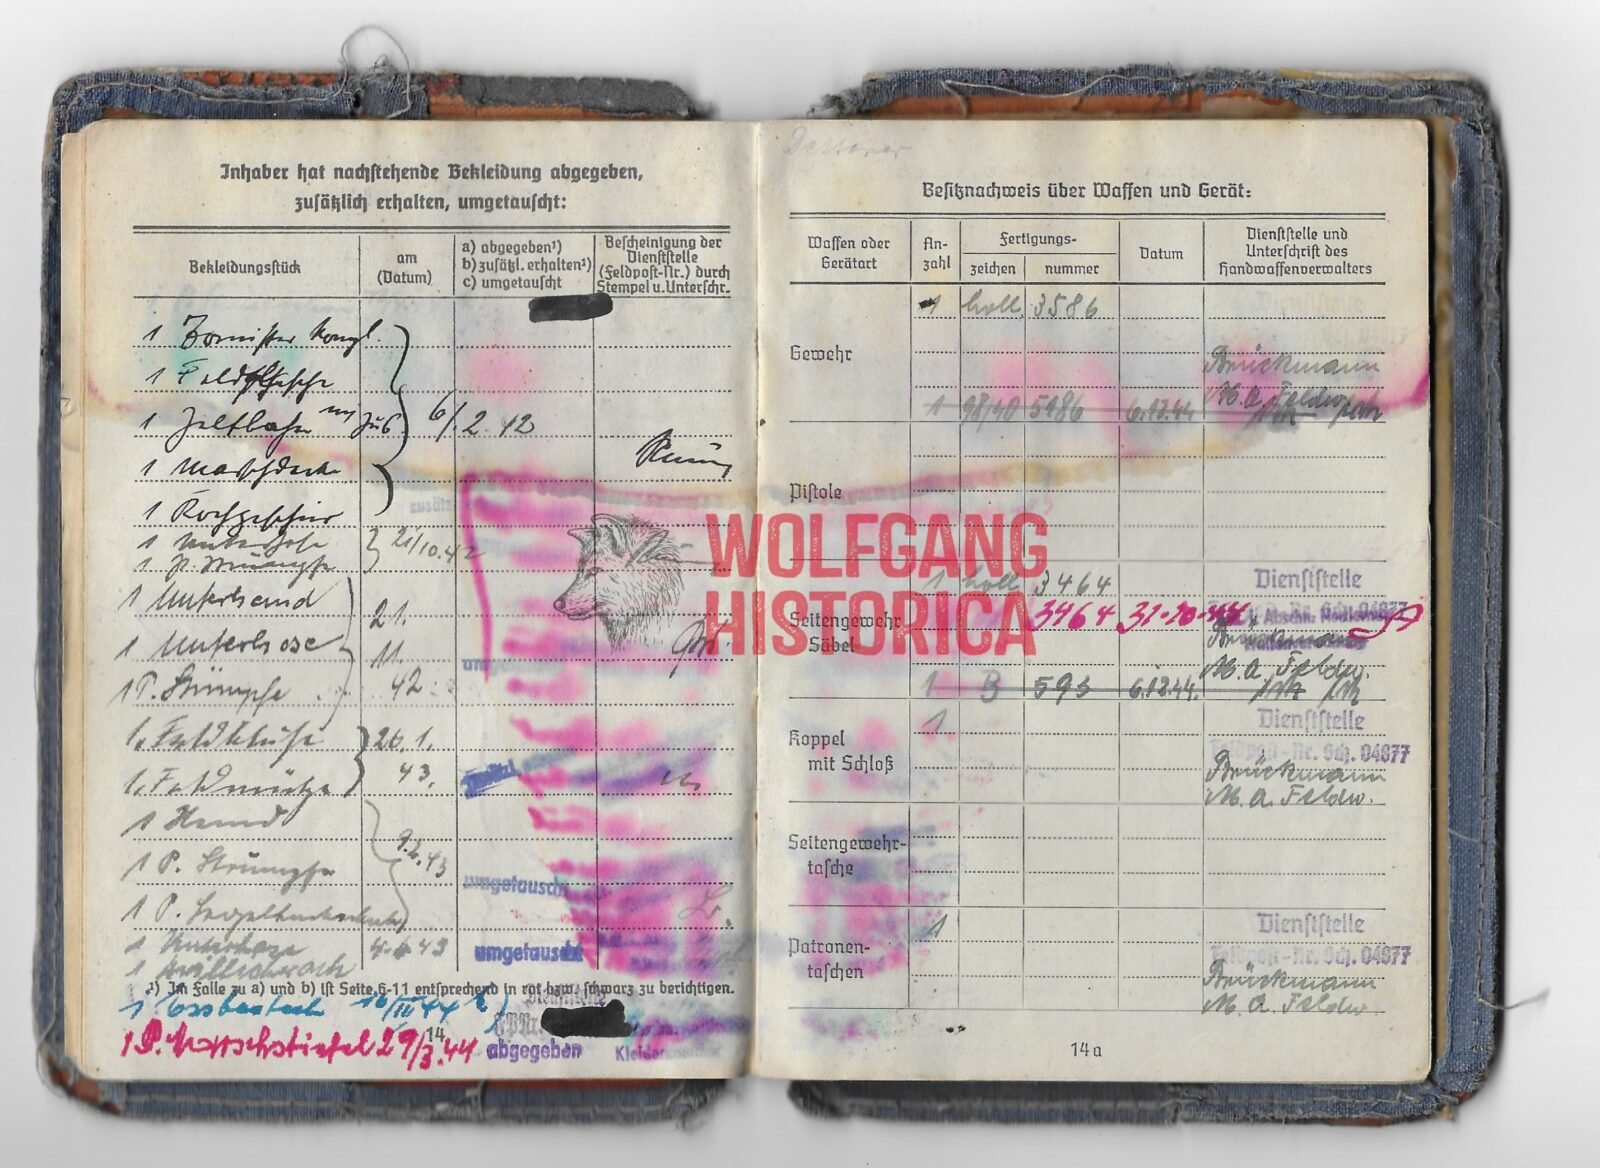 Inhaber hat nachstehende Bekleidung abgegeben,
zusätzlich erhalten, umgetauscht:
Bekleidungsstück
am
(Datum)
a) abgegeben¹)
b) zusätzl. erhalten¹)
c) umgetauscht
Bescheinigung der
Dienststelle
(Feldpost-Nr.) durch
Stempel u. Unterschr.
1 Tornister
1 Feldflasche
1 Zeltbahn
6/.2.42
1
1 Kochgeschirr
1 Unterhose 21/10.42
1 P. Strümpfe
1 Unterhemd
21.
1 Unterhose
11.
1 P. Strümpfe
42
umgetauscht
1. Feldbluse
26.1.
1. Feldmütze
43.
zusätzl.
1 Hemd
9.2.43
1 P. Strümpfe
umgetauscht
1 P.
1 Unterhose 4.6.43
umgetauscht
1 Drillichrock
¹) Im Falle zu a) und b) ist Seite 6-11 entsprechend in rot bzw. schwarz zu berichtigen.
1 Essbesteck 16/III 44
Dienststelle
FPNr.
14
1 P. Marschstiefel 29/3.44
abgegeben
WOLFGANG
HISTORICA
Besitznachweis über Waffen und Gerät:
Waffen oder
Gerätart
An-
zahl
Fertigungs-
zeichen
nummer
Datum
Dienststelle und
Unterschrift des
Handwaffenverwalters
1 holl. 3586
Gewehr
Brückmann
M.A. Feldw.
1 98/40 5986 6.12.44
Pistole
1 holl. 3464
Dienststelle
Seitengewehr
3464 31.10.44
Säbel
Brückmann
M.A. Feldw.
1 B 593 6.12.44.
Koppel
mit Schloß
1
Dienststelle
Feldpost-Nr. Sch. 04877
Brückmann
M.A. Feldw.
Seitengewehr-
tasche
Patronen-
taschen
1
Dienststelle
Feldpost-Nr. Sch. 04877
Brückmann
M.A. Feldw.
14a